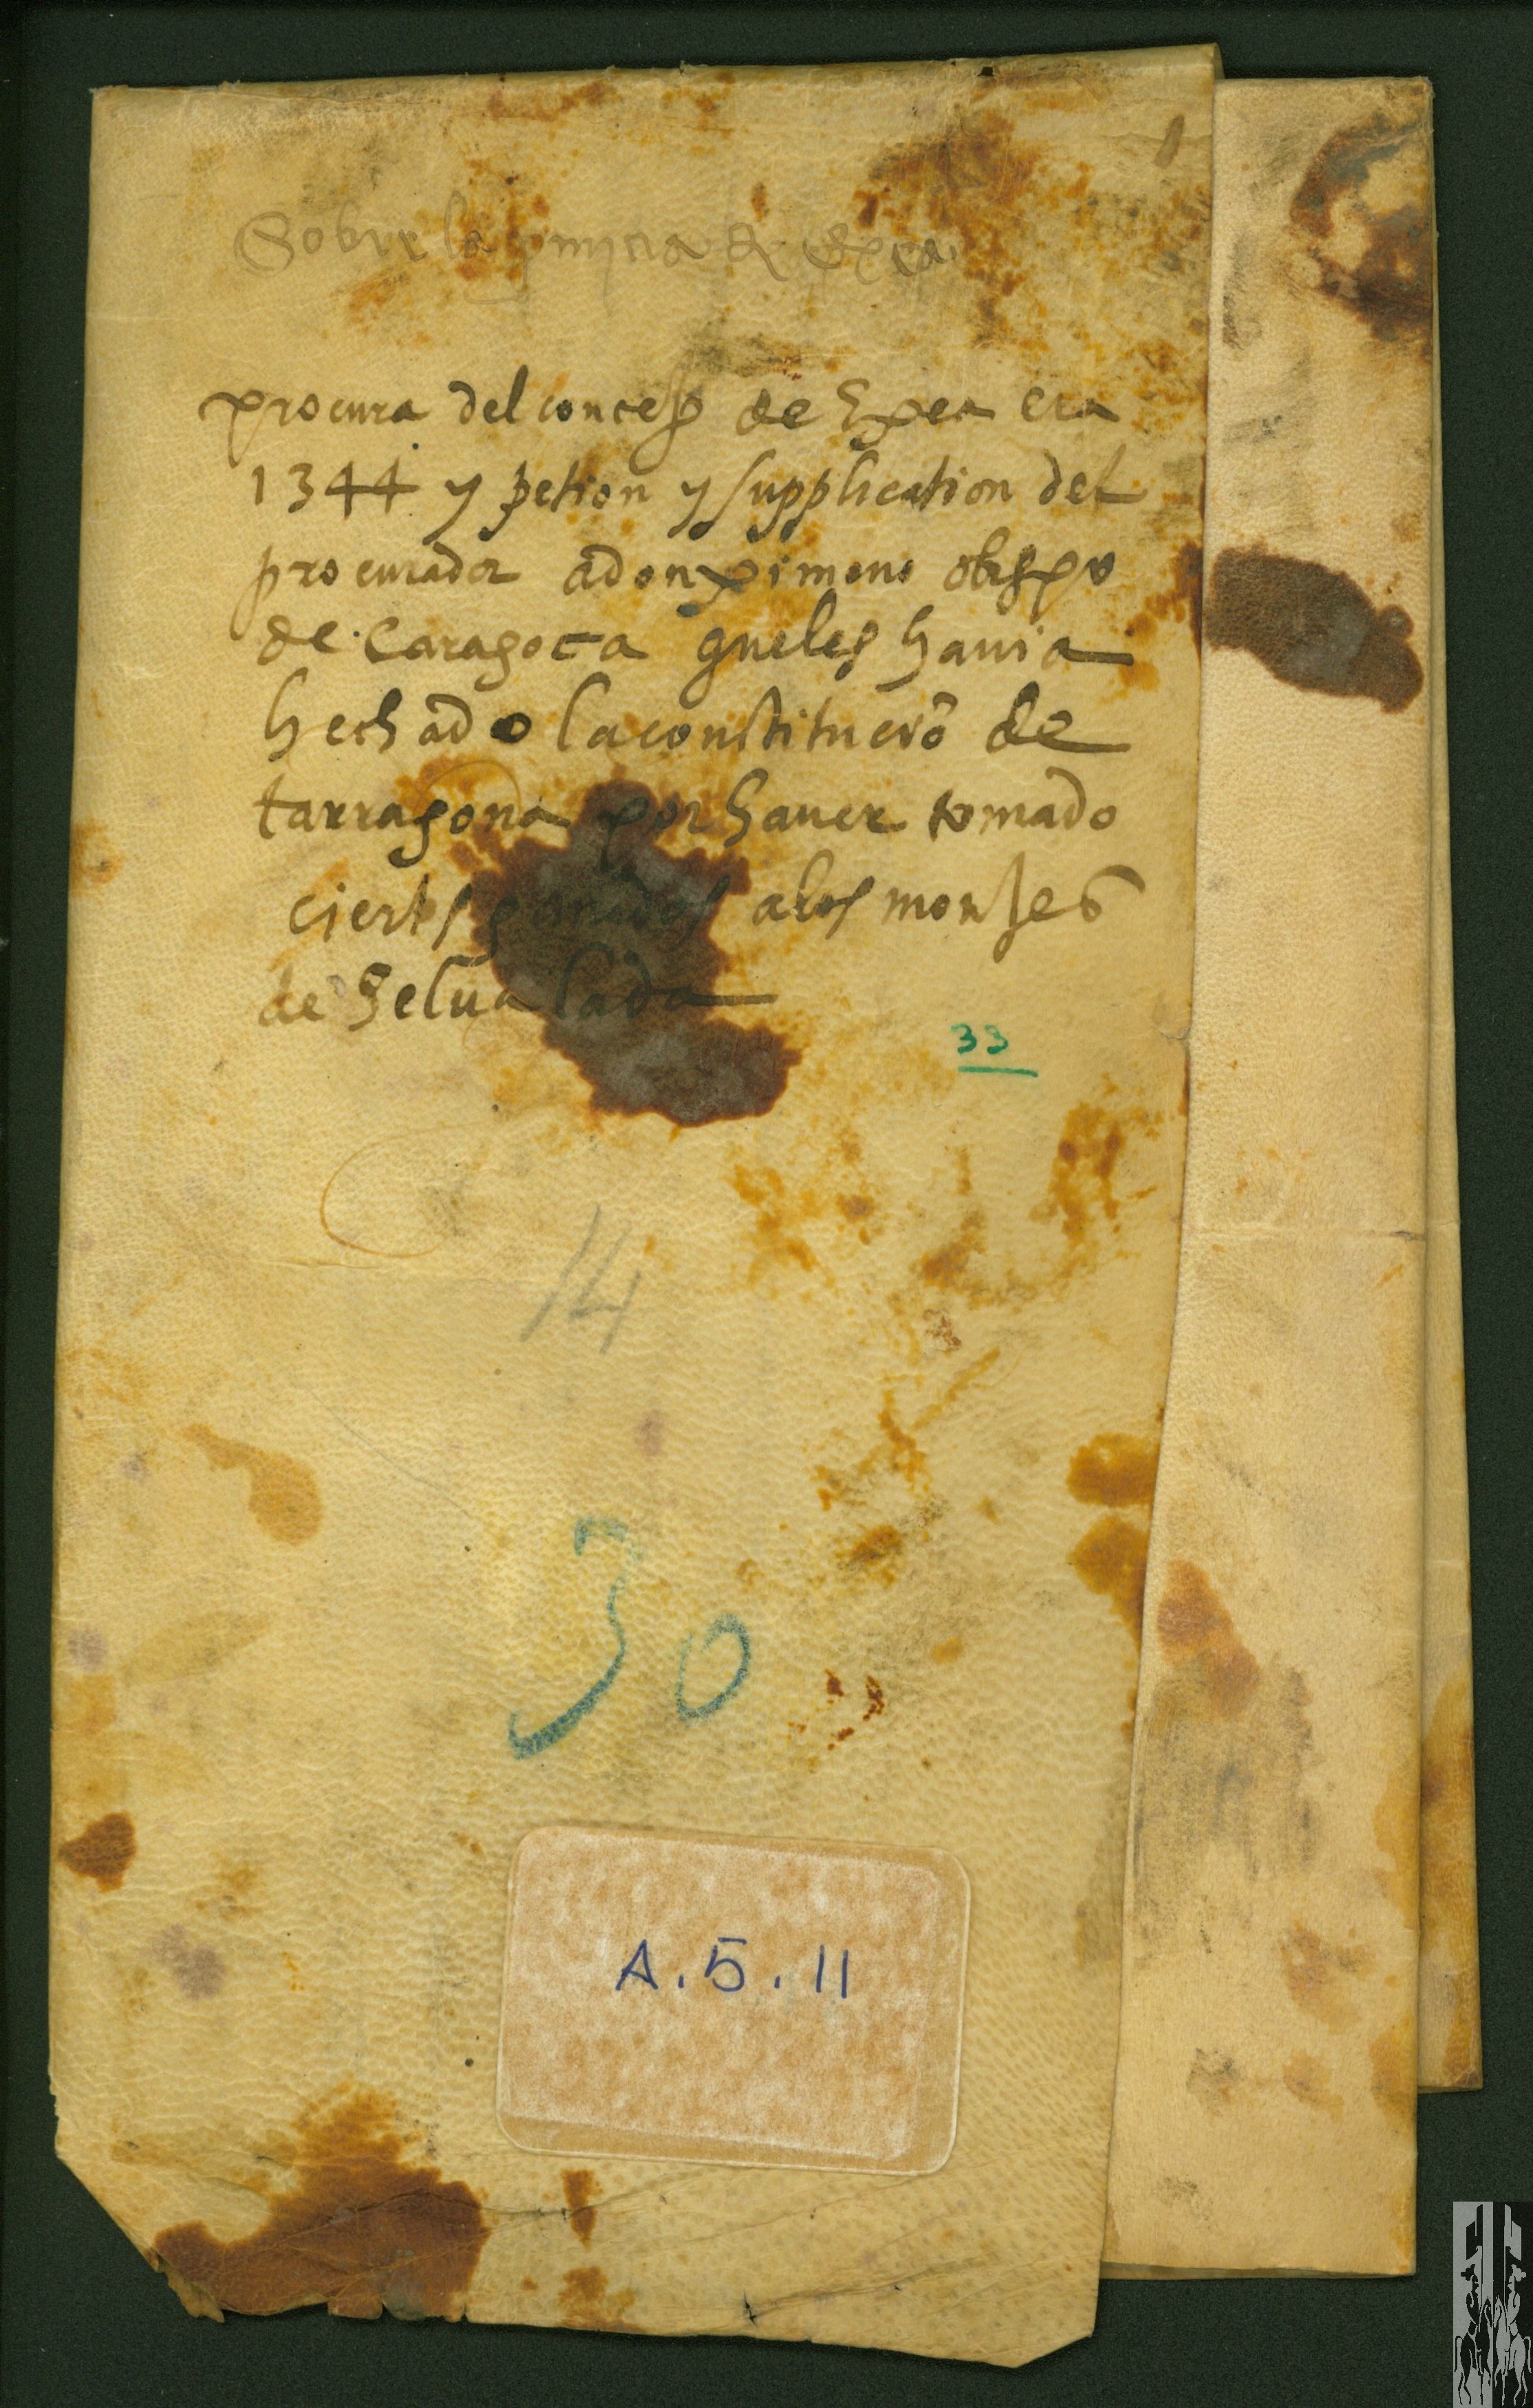 Sobre la primicia de Exea
procura del concejo de Exea era
1344 y petion y supplication del
procurador a don ximeno obispo
de Caragoça que les havia
hechado la constitucio de
tarragona por haver tomado
ciertos ganados a los monjes
de Selva lada
33
14
30
A.5.11